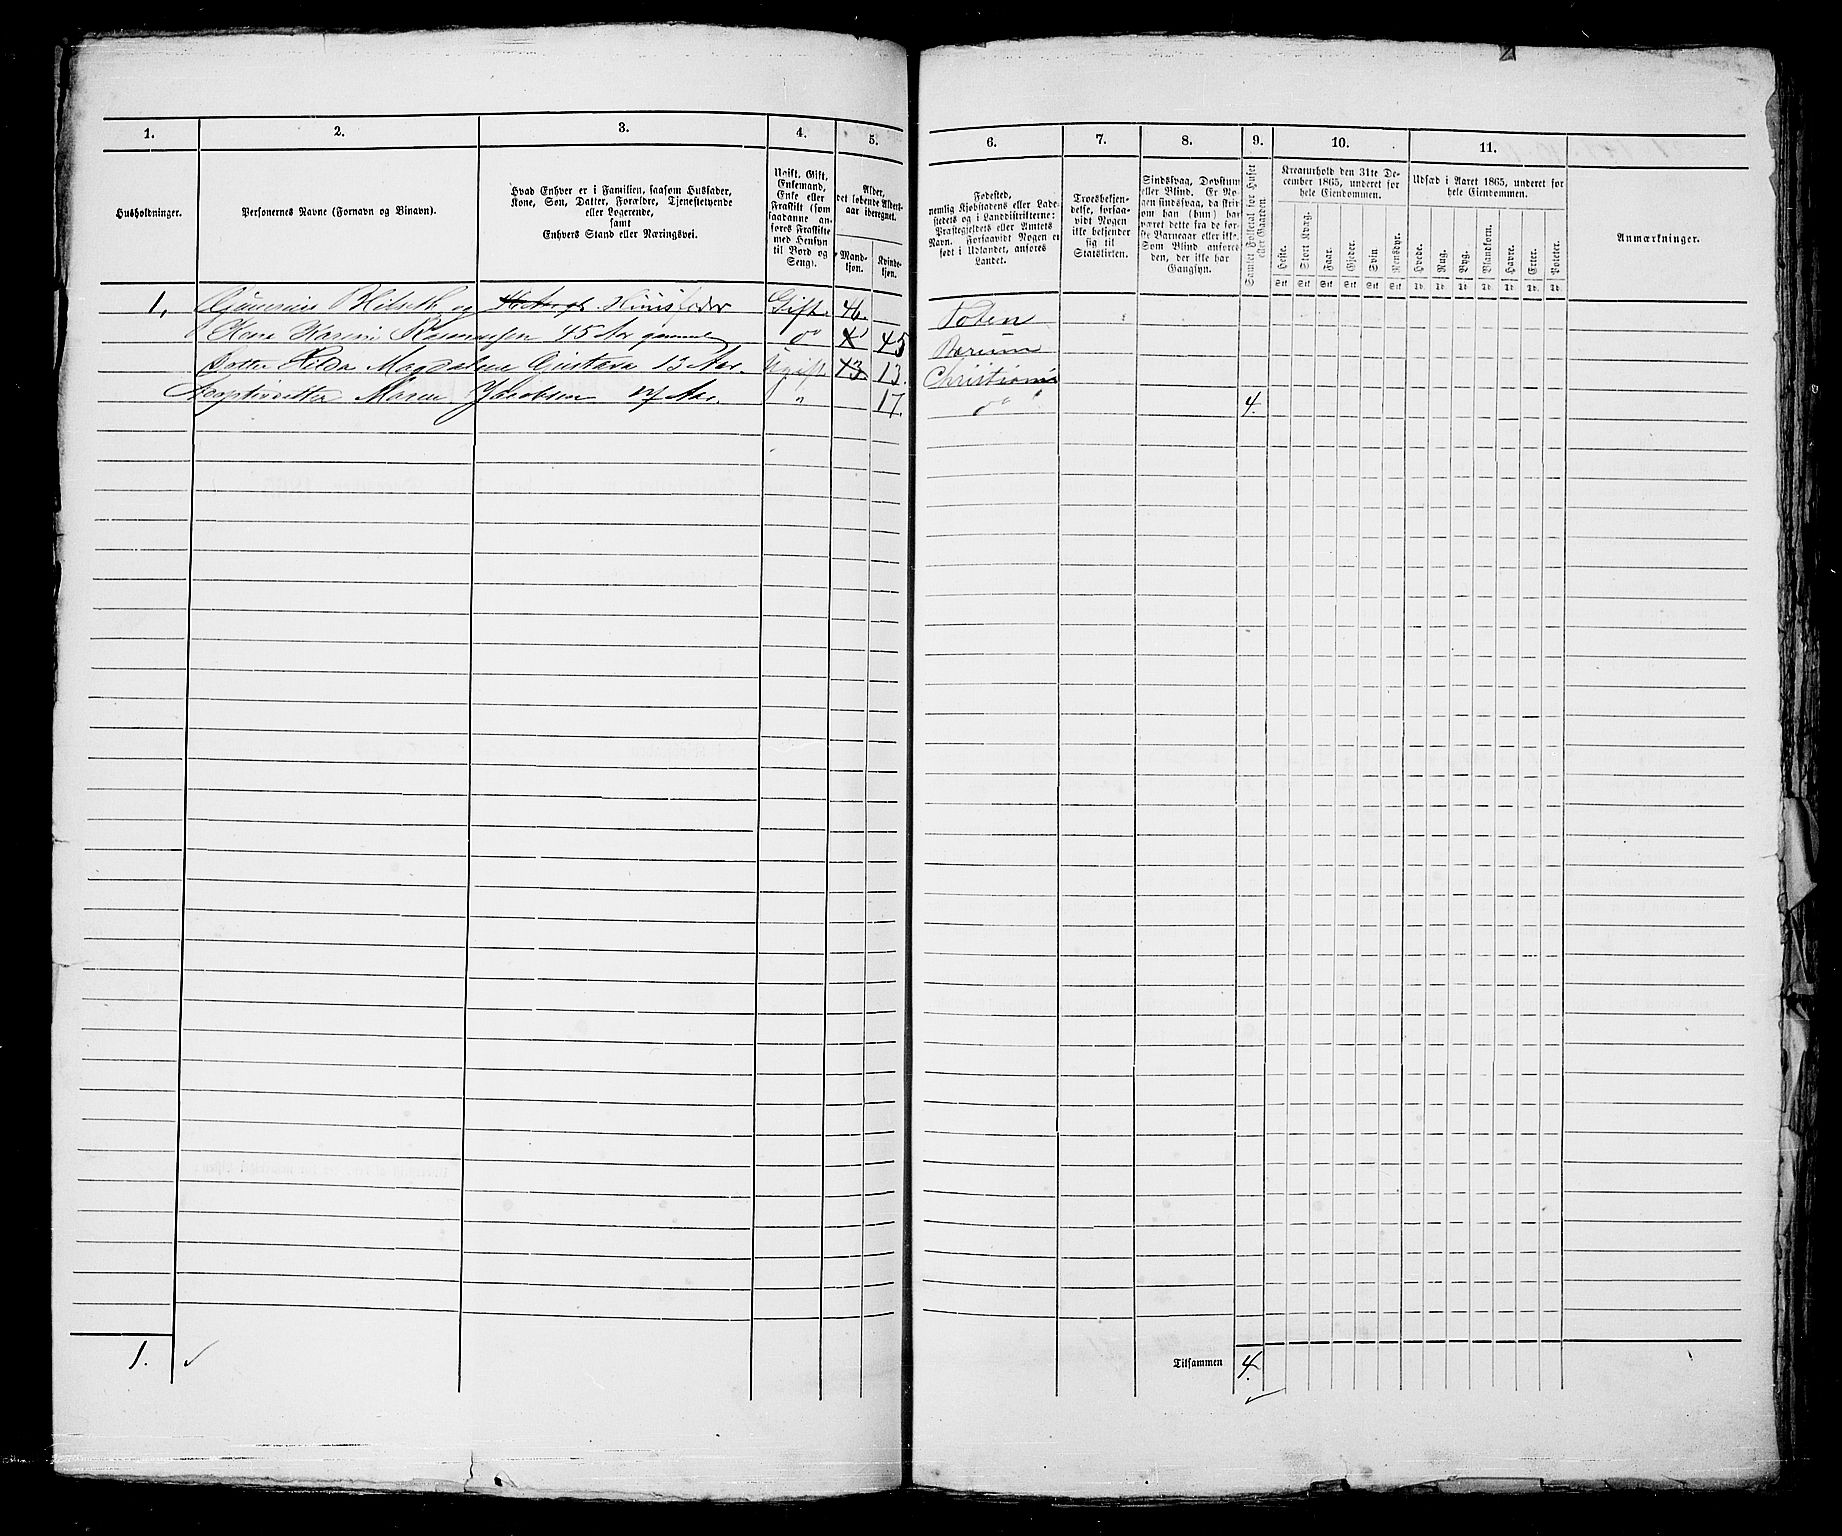 1. 2. 3. 4. 5. 6. 7. 8. 9. 10. 11.
Husholdninger.
Personernes Navne (Fornavn og Binavn).
Hvad Enhver er i Familien, saasom Husfader,
Kone, Søn, Datter, Forældre, Tjenestetyende
eller Logerende,
samt
Enhvers Stand eller Næringsvei.
Ugift, Gift,
Enkemand,
Enke eller
Fraskilt (som
saadanne an-
føres Fraskilte
med Hensyn
til Bord og
Seng).
Alder,
det løbende Alders-
aar iberegnet.
Mand-
kjøn.
Kvinde-
kjøn.
Fødested,
nemlig Kjøbstadens eller Lade-
stedets og i Landdistrikterne:
Præstegjeldets eller Amtets
Navn. Forsaavidt Nogen er
født i Udlandet, anføres
Landet.
Troesbekjen-
delse, forsaa-
vidt Nogen
ikke bekjender
sig til
Statskirken.
Sindssvag, Døvstum
eller Blind. Er No-
gen sindssvag, da skri-
ves om han (hun) har
været dette fra de før-
ste Barneaar eller ikke.
Som Blind anføres
den, der ikke har
Gangsyn.
Samlet Folketal for Huset
eller Gaarden.
Kreaturhold den 31te De-
cember 1865, underet for
hele Eiendommen.
Heste. Stort Kvæg. Faar. Gjeder. Svin Rensdyr.
Stk Stk Stk Stk Stk Stk
Udsæd i Aaret 1865, underet for
hele Eiendommen.
Hvede. Rug. Byg. Blandkorn. Havre. Erter. Poteter.
Td. Td. Td. Td. Td. Td. Td.
Anmærkninger.
1, Huusfader Gift 46. Toten
Kone Karen Rasmussen 45 Aar gammel do 45 Bærum
Datter Hilda Magdalene Gustava 13 Aar. Ugift 13 13. Christiania
Adoptivdatter Maren Jakobsen 17 Aar. " 17. do 4.
1. Tilsammen 4.